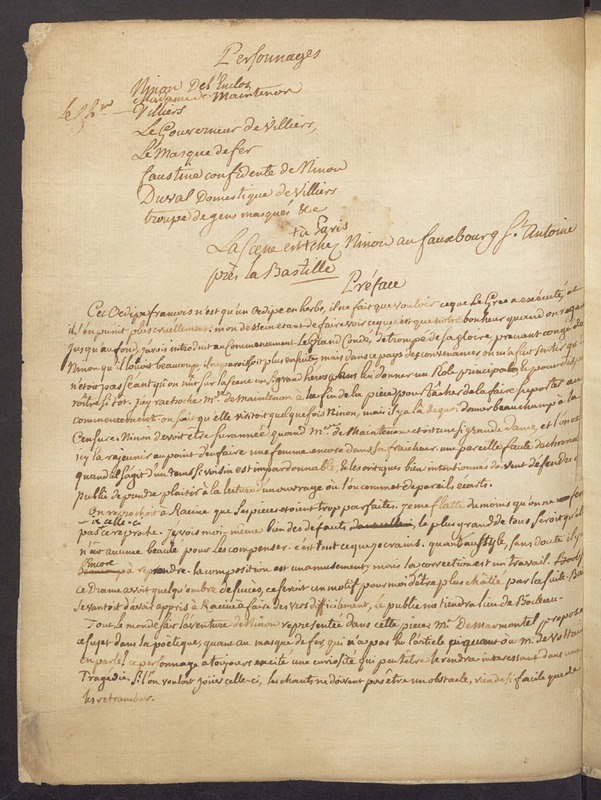 Personnages
Ninon De l'Enclos
Madame de Maintenon
le Ch.er — Villiers
Le Gouverneur de Villiers,
Le Masque de fer
faustine confidente de Ninon
Duval Domestique de Villiers
troupe de gens masqués &c
+ a Paris
La scene est + chez Ninon au fauxbourg St. Antoine
près la Bastille
Préface
Cet Oedipe francois n'est qu'un Oedipe en herbe, il ne fait que vouloir ce que Le Grec a exécuté, et
il s'en punit plus cruellement; mon dessein etant de faire voir ce que c'est que notre bonheur quand on
jusqu'au fond, j'avois introduit au commencement Le Grand Condé, détrompé de sa gloire, prenant congé de
Ninon qu'il louoit beaucoup, il ne paroissoit plus ensuite, mais dans ce païs des convenances on m'a fait sentir qu'il
n'etoit pas séant qu'on mit sur la scene un si grand héros sans lui donner un Role principal,
j'ay rattaché Me. de Maintenon à la fin de la piece pour tâcher de la faire supporter au
commencement. on sait qu'elle visitoit quelquefois Ninon, mais il y a là de quoi donner beau champ à la
Censure. Ninon devoit être surannée quand Me. de Maintenon etoit une si grande Dame, et l'on ose
icy la rajeunir au point d'en faire une femme encore dans sa fraîcheur. une pareille faute de chronol
quand il s'agit d'un tems si voisin est impardonnable, & les critiques bien intentionnés doivent défendre au
public de prendre plaisir à la lecture d'un ouvrage où l'on commet de pareils ecarts.
On reprochoit à Racine que ses pieces etoient trop parfaites. je me flatte du moins qu'on ne fera
pas ce reproche à celle-ci. Je vois moi-même bien des defauts, le plus grand de tous seroit qu'il
n'eut aucune beauté pour les compenser. c'est tout ce que je crains. quant au style, sans doute il y a
encore à reprendre. la composition est un amusement, mais la correction est un travail.
ce Drame avoit quelqu'ombre de succes, ce seroit un motif pour moi d'être plus châtié par la suite.
se vantoit d'avoir appris à Racine à faire des vers difficilement, le public me tiendra lieu de Boileau.
Tout le monde sait l'aventure de Ninon representée dans cette piece. Mr. De Marmontel propose
ce sujet dans sa poëtique, quant au masque de fer, qui n'a pas lu l'article piquant où Mr. de Voltaire
en parle? ce personnage a toujours excité une curiosité qui peut être le rendra interessant dans une
Tragédie. si l'on vouloit jouer celle-ci, les chants ne doivent pas etre un obstacle, rien de si facile que de
les retrancher.